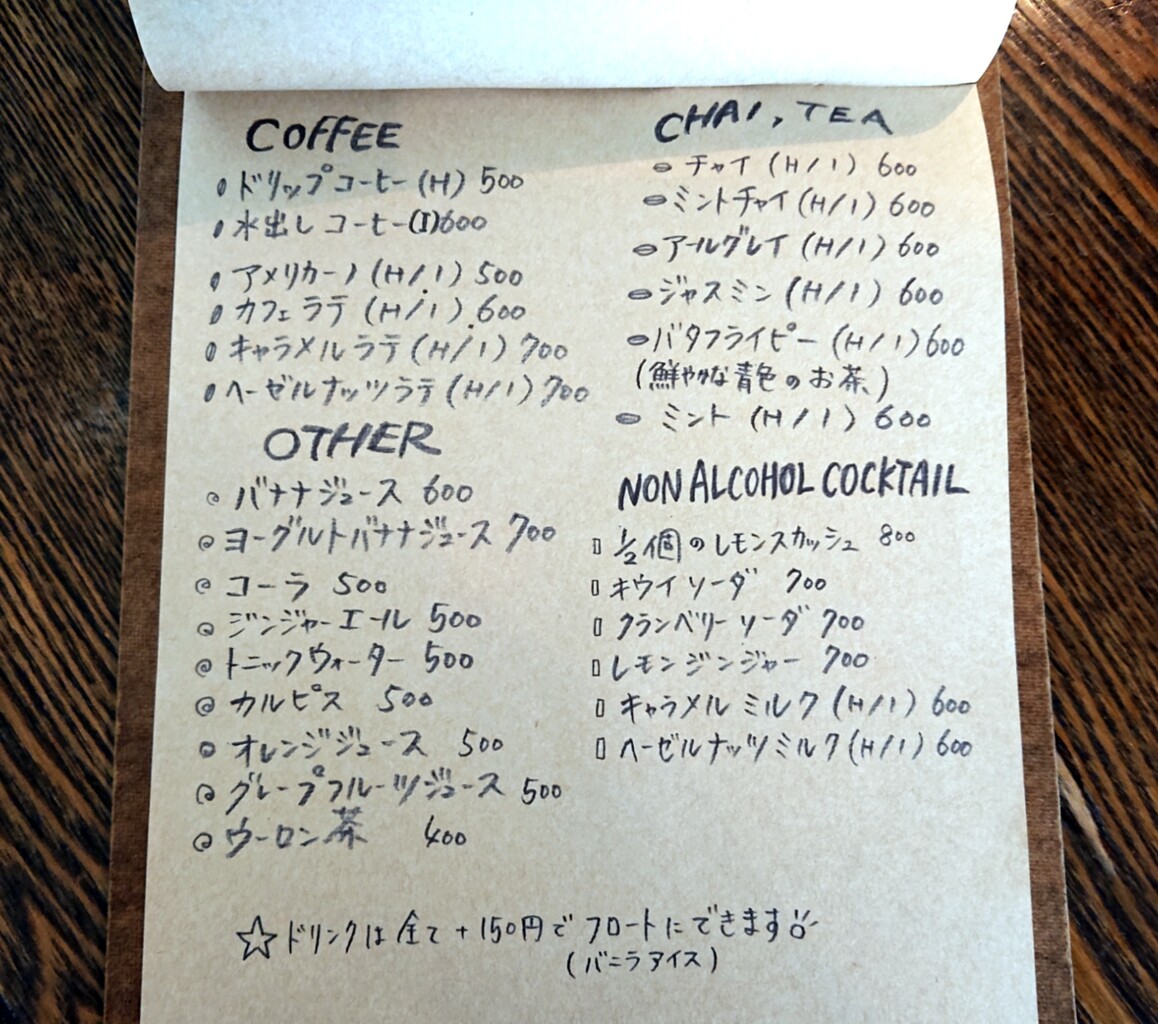 COFFEE
ドリップコーヒー(H) 500
水出しコーヒー(I)600
アメリカーノ(H/I) 500
カフェラテ(H/I) 600
キャラメルラテ(H/I) 700
ヘーゼルナッツラテ(H/I) 700
OTHER
バナナジュース 600
ヨーグルトバナナジュース 700
コーラ 500
ジンジャーエール 500
トニックウォーター 500
カルピス 500
オレンジジュース 500
グレープフルーツジュース 500
ウーロン茶 400
CHAI, TEA
チャイ(H/I) 600
ミントチャイ(H/I) 600
アールグレイ(H/I) 600
ジャスミン(H/I) 600
バタフライピー(H/I)600
(鮮やかな青色のお茶)
ミント(H/I) 600
NON ALCOHOL COCKTAIL
1/2個のレモンスカッシュ 800
キウイソーダ 700
クランベリーソーダ 700
レモンジンジャー 700
キャラメルミルク(H/I) 600
ヘーゼルナッツミルク(H/I) 600
☆ドリンクは全て+150円でフロートにできます
(バニラアイス)